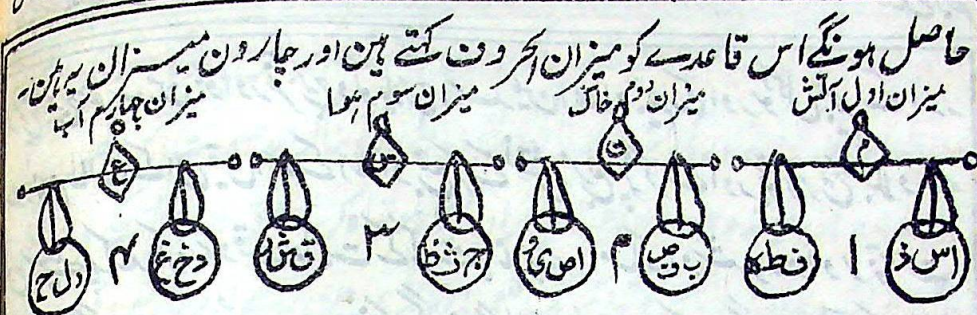 حاصل ہونگے اس قاعدے کو میزان الحروف کہتے ہین اور چارون میزان یہ ہین
میزان اول آتش میزان دوم خاک میزان سوم ہوا میزان چہارم آب
م ع
ا س ذ ا ف ط ہ ب و ص ۳ د خ غ ۴ د ل ح